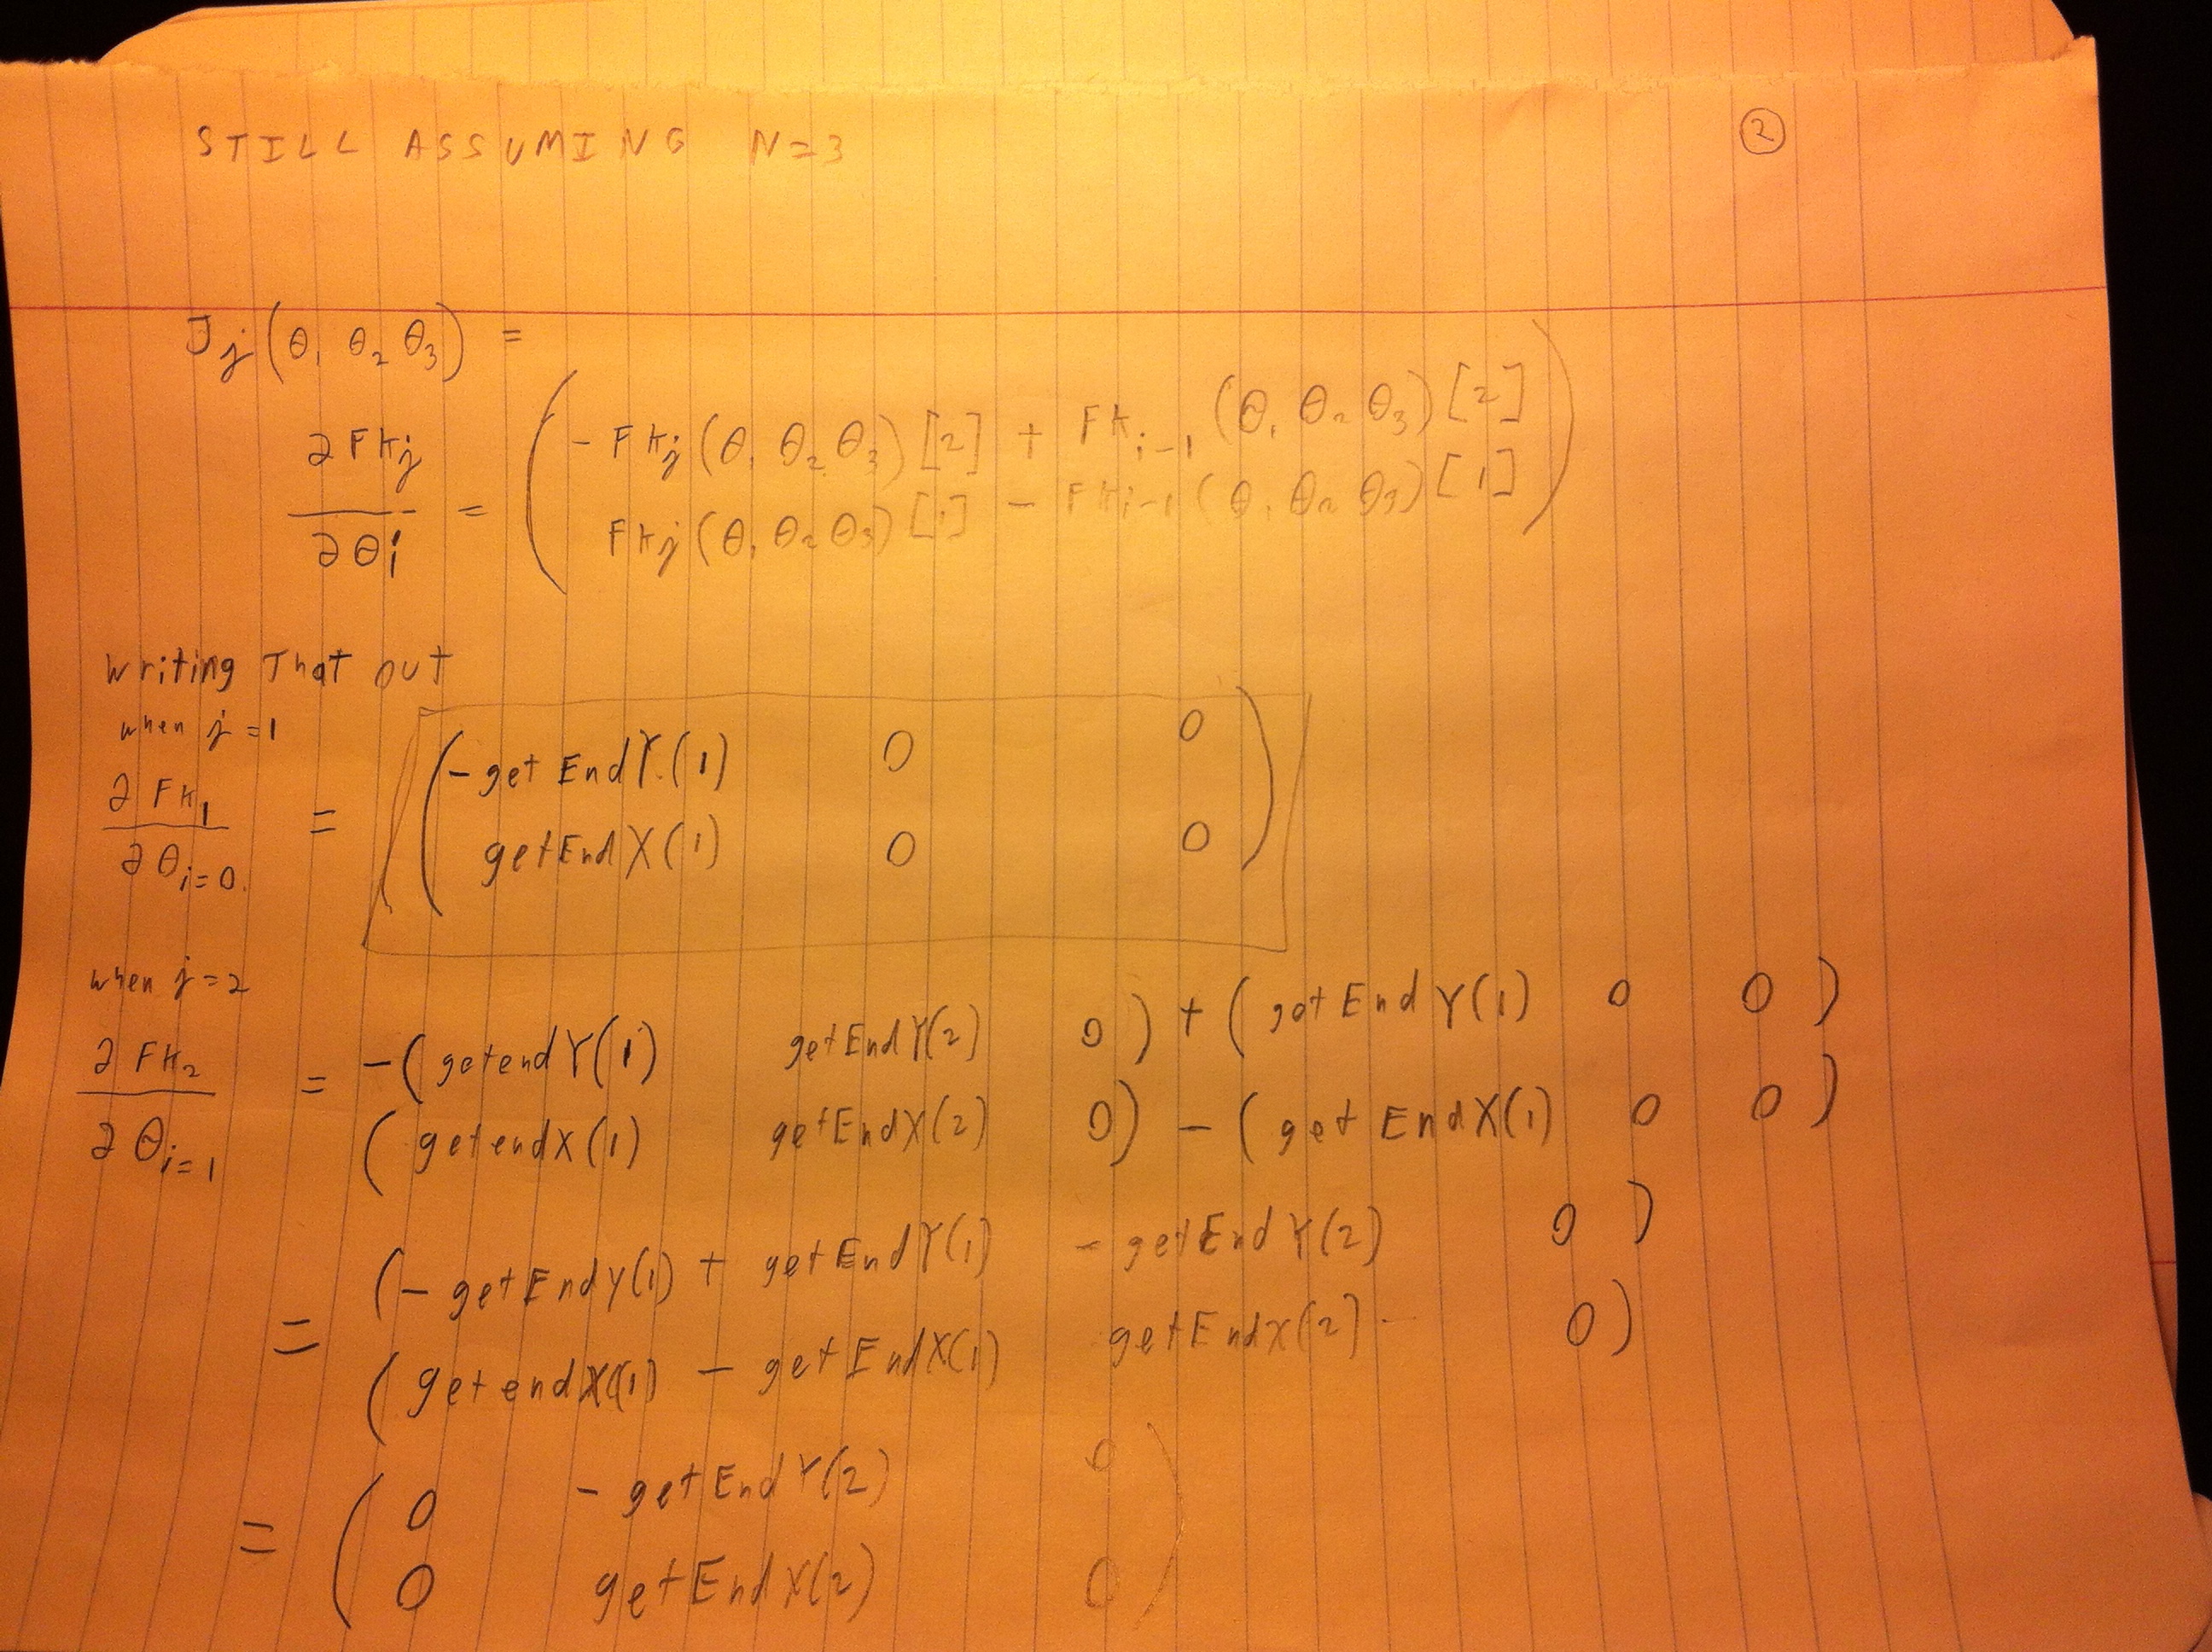 STILL ASSUMING N=3
2
Jj(θ1 θ2 θ3) =
∂FKj / ∂θi = ( -FKj(θ1 θ2 θ3)[2] + FKi-1(θ1 θ2 θ3)[2]
FKj(θ1 θ2 θ3)[1] - FKi-1(θ1 θ2 θ3)[1] )
writing That out
when j=1
∂FK1 / ∂θi=0 = ( -getEndY(1) 0 0
getEndX(1) 0 0 )
when j=2
∂FK2 / ∂θi=1 = -(getendY(1) getEndY(2) 0) + (getEndY(1) 0 0)
(getendX(1) getEndX(2) 0) - (getEndX(1) 0 0)
= (-getEndY(1) + getEndY(1) -getEndY(2) 0)
(getendX(1) - getEndX(1) getEndX(2] 0)
= ( 0 -getEndY(2) 0
0 getEndX(2) 0 )